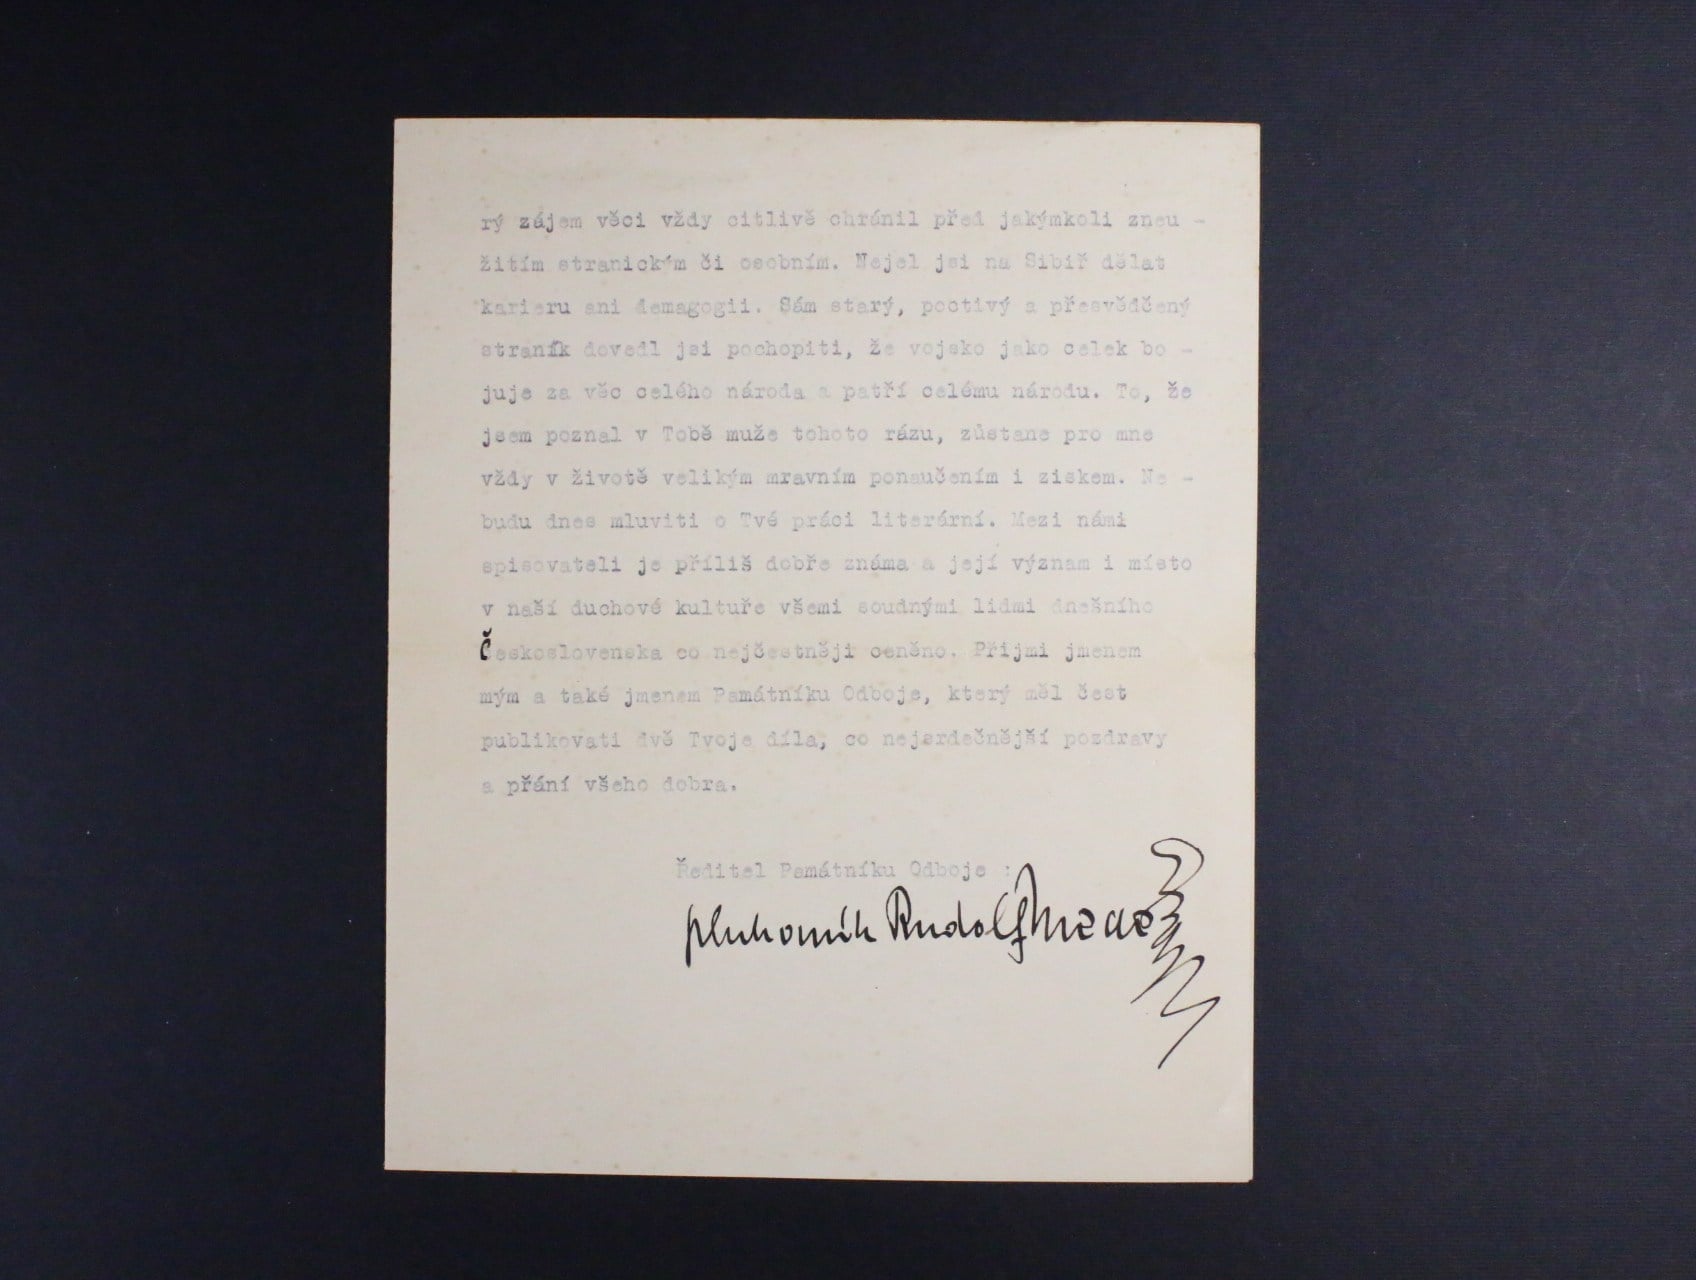 rý zájem věci vždy citlivě chránil před jakýmkoli zneu -
žitím stranickým či osobním. Nejel jsi na Sibiř dělat
karieru ani demagogii. Sám starý, poctivý a přesvědčený
straník dovedl jsi pochopiti, že vojsko jako celek bo -
juje za věc celého národa a patří celému národu. To, že
jsem poznal v Tobě muže tohoto rázu, zůstane pro mne
vždy v životě velikým mravním ponaučením i ziskem. Ne -
budu dnes mluviti o Tvé práci literární. Mezi námi
spisovateli je příliš dobře známa a její význam i místo
v naší duchové kultuře všemi soudnými lidmi dnešního
Československa co nejčestněji oceněno. Přijmi jmenem
mým a také jmenem Památníku Odboje, který měl čest
publikovati dvě Tvoje díla, co nejsrdečnější pozdravy
a přání všeho dobra.
Ředitel Památníku Odboje :
plukovník Rudolf Medek